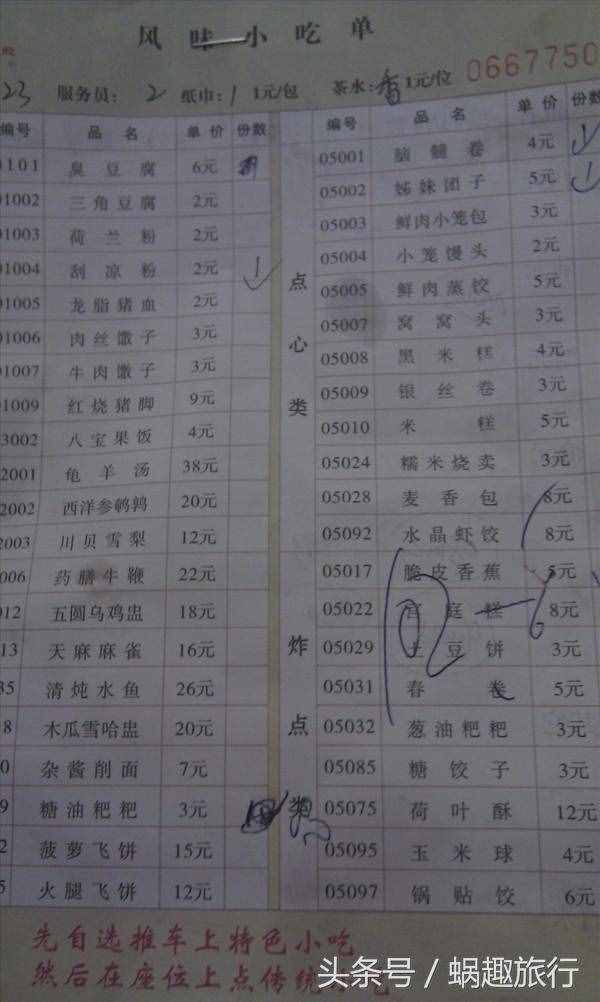 风味小吃单
0667750
23 服务员: 2 纸巾: 1 1元/包 茶水: 香 1元/位
编号 品名 单价 份数
0101 臭豆腐 6元
01002 三角豆腐 2元
01003 荷兰粉 2元
01004 刮凉粉 2元 1
01005 龙脂猪血 2元
01006 肉丝馓子 3元
01007 牛肉馓子 3元
01009 红烧猪脚 9元
3002 八宝果饭 4元
2001 龟羊汤 38元
2002 西洋参鹌鹑 20元
2003 川贝雪梨 12元
006 药膳牛鞭 22元
012 五圆乌鸡盅 18元
13 天麻麻雀 16元
35 清炖水鱼 26元
8 木瓜雪哈盅 20元
0 杂酱削面 7元
9 糖油粑粑 3元
2 菠萝飞饼 15元
5 火腿飞饼 12元
编号 品名 单价 份数
点心类
05001 脑髓卷 4元 1
05002 姊妹团子 5元 1
05003 鲜肉小笼包 3元
05004 小笼馒头 2元
05005 鲜肉蒸饺 5元
05007 窝窝头 3元
05008 黑米糕 4元
05009 银丝卷 3元
05010 米糕 5元
05024 糯米烧卖 3元
05028 麦香包 8元
05092 水晶虾饺 8元
炸点类
05017 脆皮香蕉 5元
05022 宫庭糕 8元
05029 土豆饼 3元
05031 春卷 5元
05032 葱油粑粑 3元
05085 糖饺子 3元
05075 荷叶酥 12元
05095 玉米球 4元
05097 锅贴饺 6元
先自选推车上特色小吃
然后在座位上点传统
头条号 / 蜗趣旅行